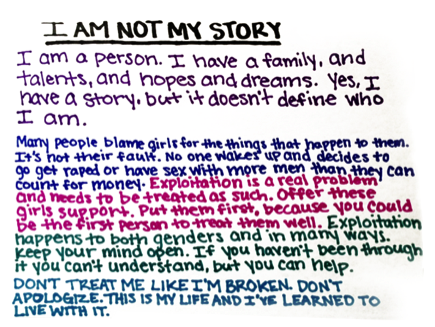 I AM NOT MY STORY
I am a person. I have a family, and
talents, and hopes and dreams. Yes, I
have a story, but it doesn't define who
I am.
Many people blame girls for the things that happen to them.
It's not their fault. No one wakes up and decides to
go get raped or have sex with more men than they can
count for money. Exploitation is a real problem
and needs to be treated as such. Offer these
girls support. Put them first, because you could
be the first person to treat them well. Exploitation
happens to both genders and in many ways.
Keep your mind open. If you haven't been through
it you can't understand, but you can help.
DON'T TREAT ME LIKE I'M BROKEN. DON'T
APOLOGIZE. THIS IS MY LIFE AND I'VE LEARNED TO
LIVE WITH IT.